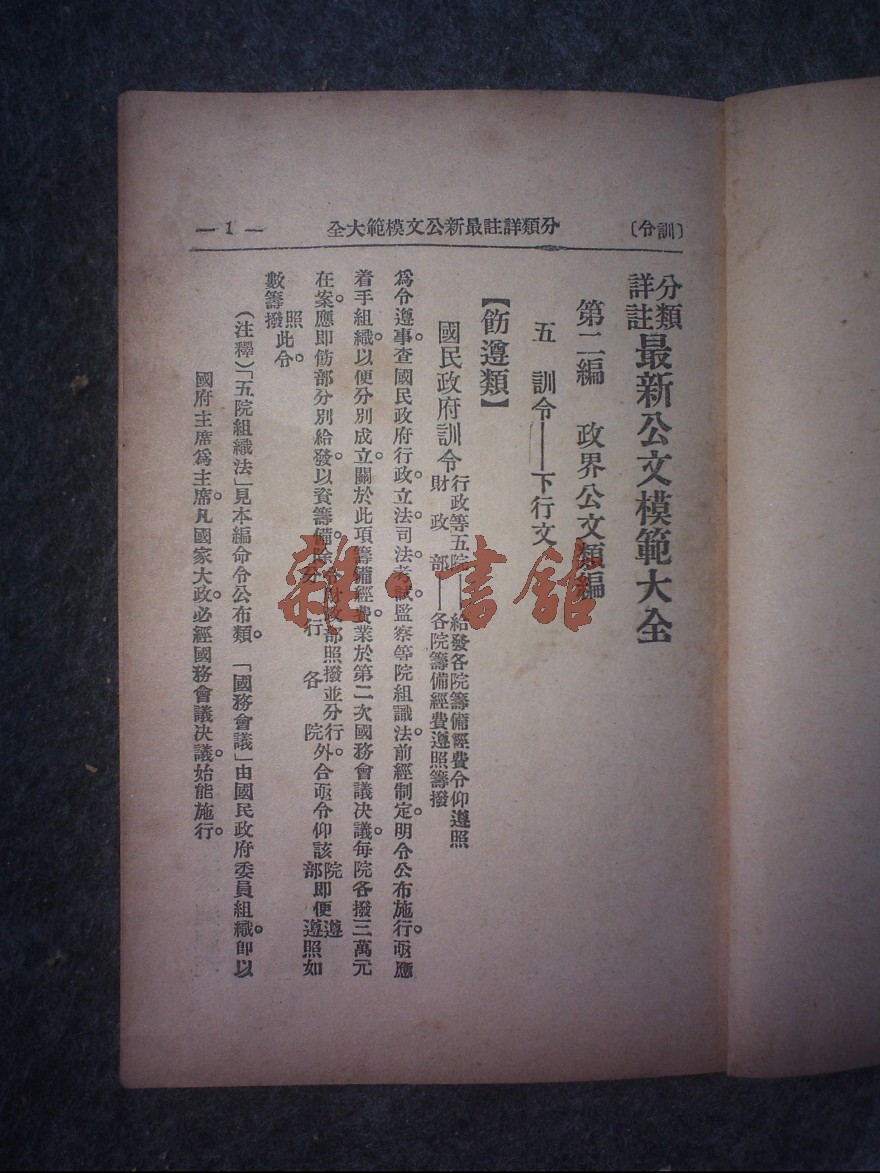 〔訓令〕
分類詳註最新公文模範大全
— 1 —
分類詳註最新公文模範大全
第二編　政界公文類編
五　訓令——下行文
【飭遵類】
國民政府訓令
行政等五院——給發各院籌備經費令仰遵照
財政部——各院籌備經費遵照籌撥
爲令遵事。查國民政府行政立法司法考試監察等院組識法。前經制定。明令公布施行。亟應
着手組織。以便分別成立。關於此項籌備經費。業於第二次國務會議決議。每院各撥三萬元
在案。應即飭部分別給發。以資籌備。除令財政部照撥並分行。分行各院外合亟令仰該院部即便遵遵照如
照數籌撥此令。
（注釋）「五院組織法」見本編命令公布類。「國務會議」由國民政府委員組織。卽以
國府主席爲主席。凡國家大政。必經國務會議決議。始能施行。
雜·書館